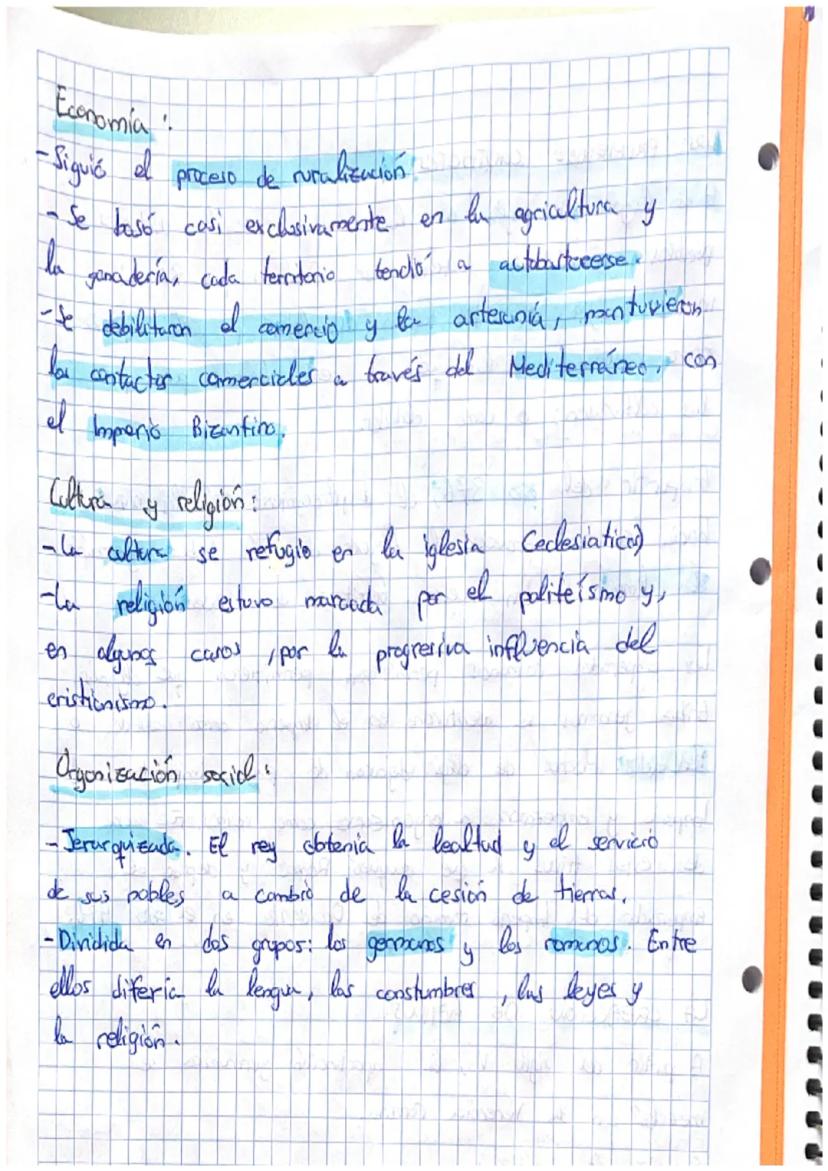 Economía:
- Siguió el proceso de ruralización.
- Se basó casi exclusivamente en la agricultura y
la ganadería, cada territorio tendió a autobastecerse.
- Se debilitaron el comercio y la artesanía, mantuvieron
los contactos comerciales a través del Mediterráneo, con
el Imperio Bizantino.
Cultura y religión:
- La cultura se refugió en la iglesia (eclesiaticos)
- La religión estuvo marcada por el politeísmo y,
en algunos casos, por la progresiva influencia del
cristianismo.
Organización social:
- Jerarquizada. El rey obtenía la lealtad y el servicio
de sus nobles a cambio de la cesión de tierras.
- Dividida en dos grupos: los germanos y los romanos. Entre
ellos difería la lengua, las constumbres, las leyes y
la religión.